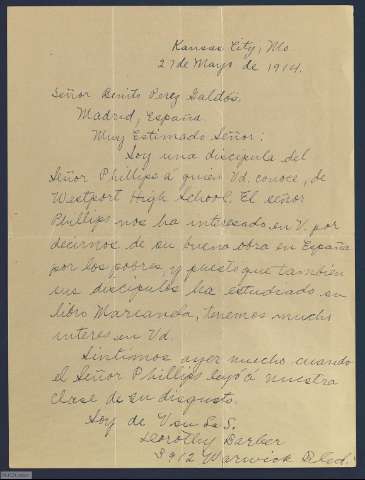 Kansas City, Mo
27 de Mayo de 1914.
Señor Benito Perez Galdós.
Madrid, España.
Muy Estimado Señor:
Soy una discipula del
Señor Phillips á quien Vd. conoce, de
Westport High School. El señor
Phillips nos ha interesado en V. por
decirnos de su buena obra en España
por los pobres, y puesto que tambien
sus discipulos ha estudiado su
libro Marianela, tenemos mucho
interes en Vd.
Sintimos ayer mucho cuando
el Señor Phillips leyó á nuestra
clase de su disgusto.
Soy de V. su S. S.
Dorothy Barber
3912 Warwick Blvd.